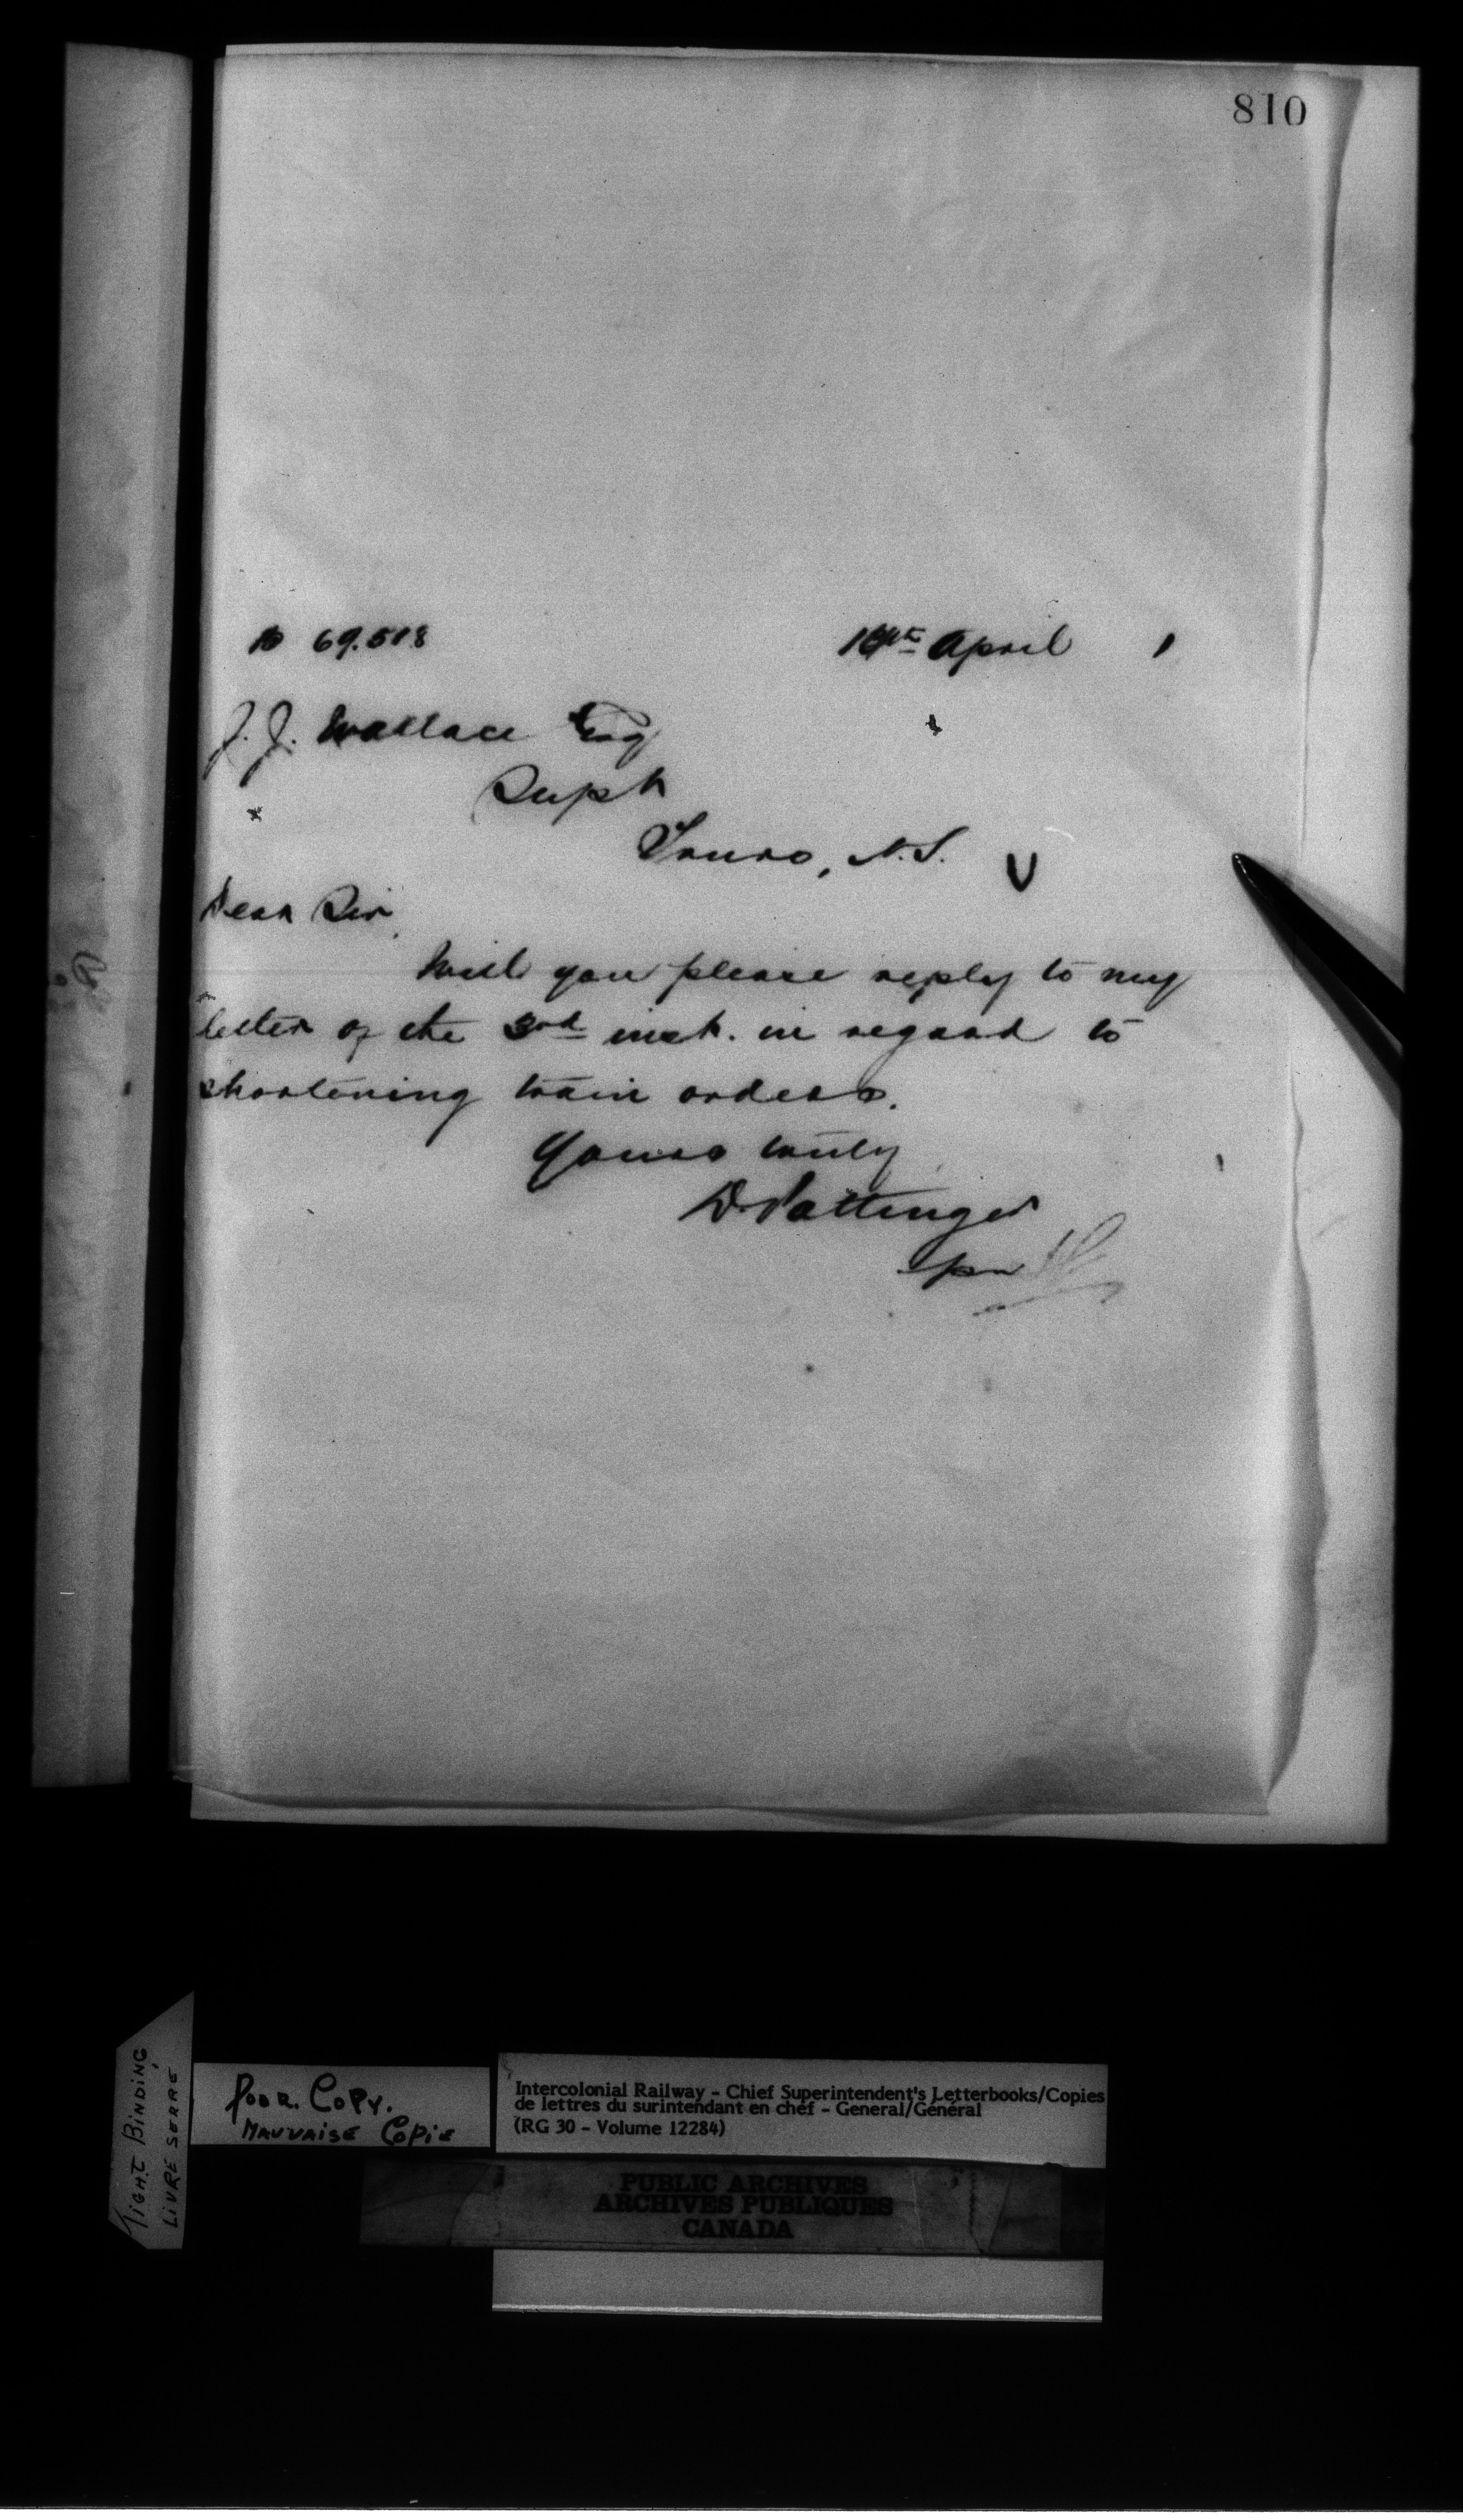 810
69.518
April 1
J. J. Wallace Esq
Supt
Truro, N.S. V
Dear Sir,
Will you please reply to my
letter of the 3rd inst. in regard to
shortening train orders.
Yours truly
D. Pottinger
per
TIGHT BINDING
LIVRE SERRÉ
POOR COPY.
MAUVAISE COPIE
Intercolonial Railway - Chief Superintendent's Letterbooks/Copies
de lettres du surintendant en chef - General/Général
(RG 30 - Volume 12284)
PUBLIC ARCHIVES
ARCHIVES PUBLIQUES
CANADA